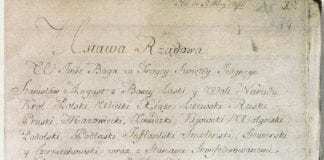 Ustawa Rządowa
W Imie Boga w Troycy Swiętey Jedynego
Stanisław August z Bozey Łaski y Woli Narodu
Krol Polski, Wielki Xiąze Litewski, Ruski
Pruski, Mazowiecki, Zmudzki, Kijowski, Wołynski
Podolski, Podlaski, Inflantski, Smolenski, Siewierski
y Czerniechowski, wraz z Stanami Skonfederowanemi